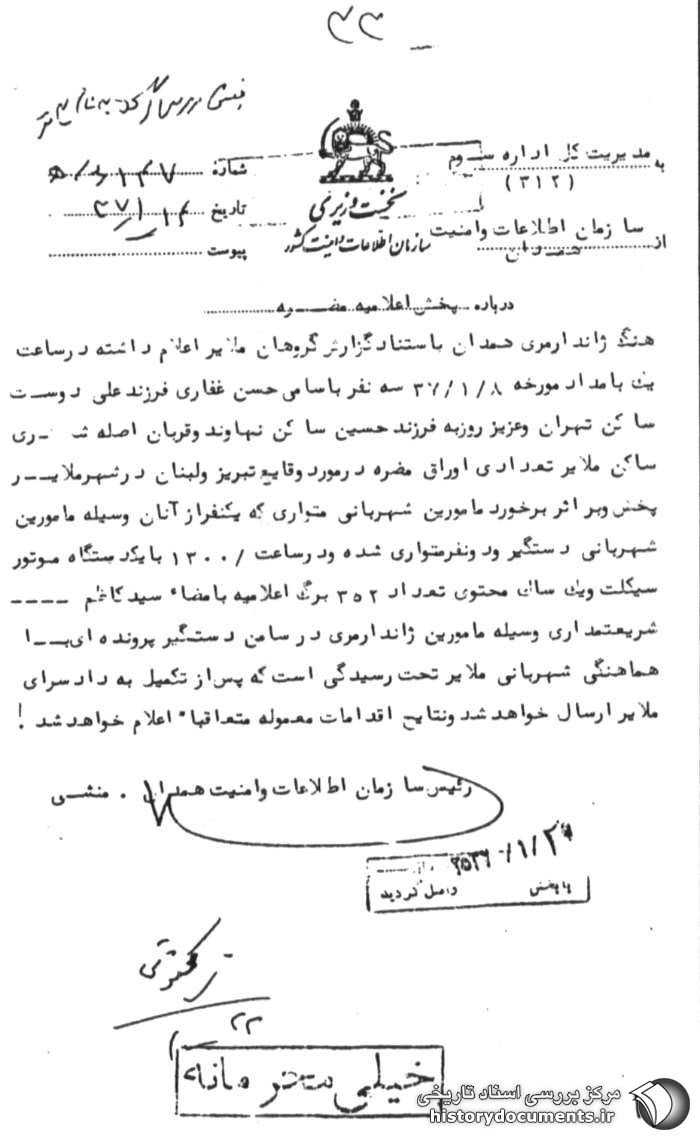 ۳۳
به مدیریت کل اداره سوم
(۳۱۲)
از سازمان اطلاعات وامنیت
همدان
نخست وزیری
سازمان اطلاعات و امنیت کشور
شماره
تاریخ
پیوست
درباره پخش اعلامیه مضره
هنگ ژاندارمری همدان باستناد گزارش گروهان ملایر اعلام داشته درساعت
یک بامداد مورخه ۳۷/۱/۸ سه نفر باسامی حسن غفاری فرزند علی دوست
ساکن تهران وعزیز روزبه فرزند حسین ساکن نهاوند وقربان اصله شـری
ساکن ملایر تعدادی اوراق مضره درمورد وقایع تبریز ولبنان درشهرملایـر
پخش وبر اثر برخورد مامورین شهربانی متواری که یکنفراز آنان وسیله مامورین
شهربانی دستگیر ودونفرمتواری شده ودرساعت /۱۳۰۰ بایکدستگاه موتور
سیکلت ویک ساک محتوی تعداد ۳۵۲ برگ اعلامیه بامضاء سید کاظم ----
شریعتمداری وسیله مامورین ژاندارمری درسامن دستگیر پرونده ای بــا
هماهنگی شهربانی ملایر تحت رسیدگی است که پس از تکمیل به دادسرای
ملایر ارسال خواهد شد ونتایج اقدامات معموله متعاقباً اعلام خواهد شد !
رئیس سازمان اطلاعات وامنیت همدان . منشی
بایبخش واصل گردید
۲۲
خیلی محرمانه
مرکز بررسی اسناد تاریخی
historydocuments.ir